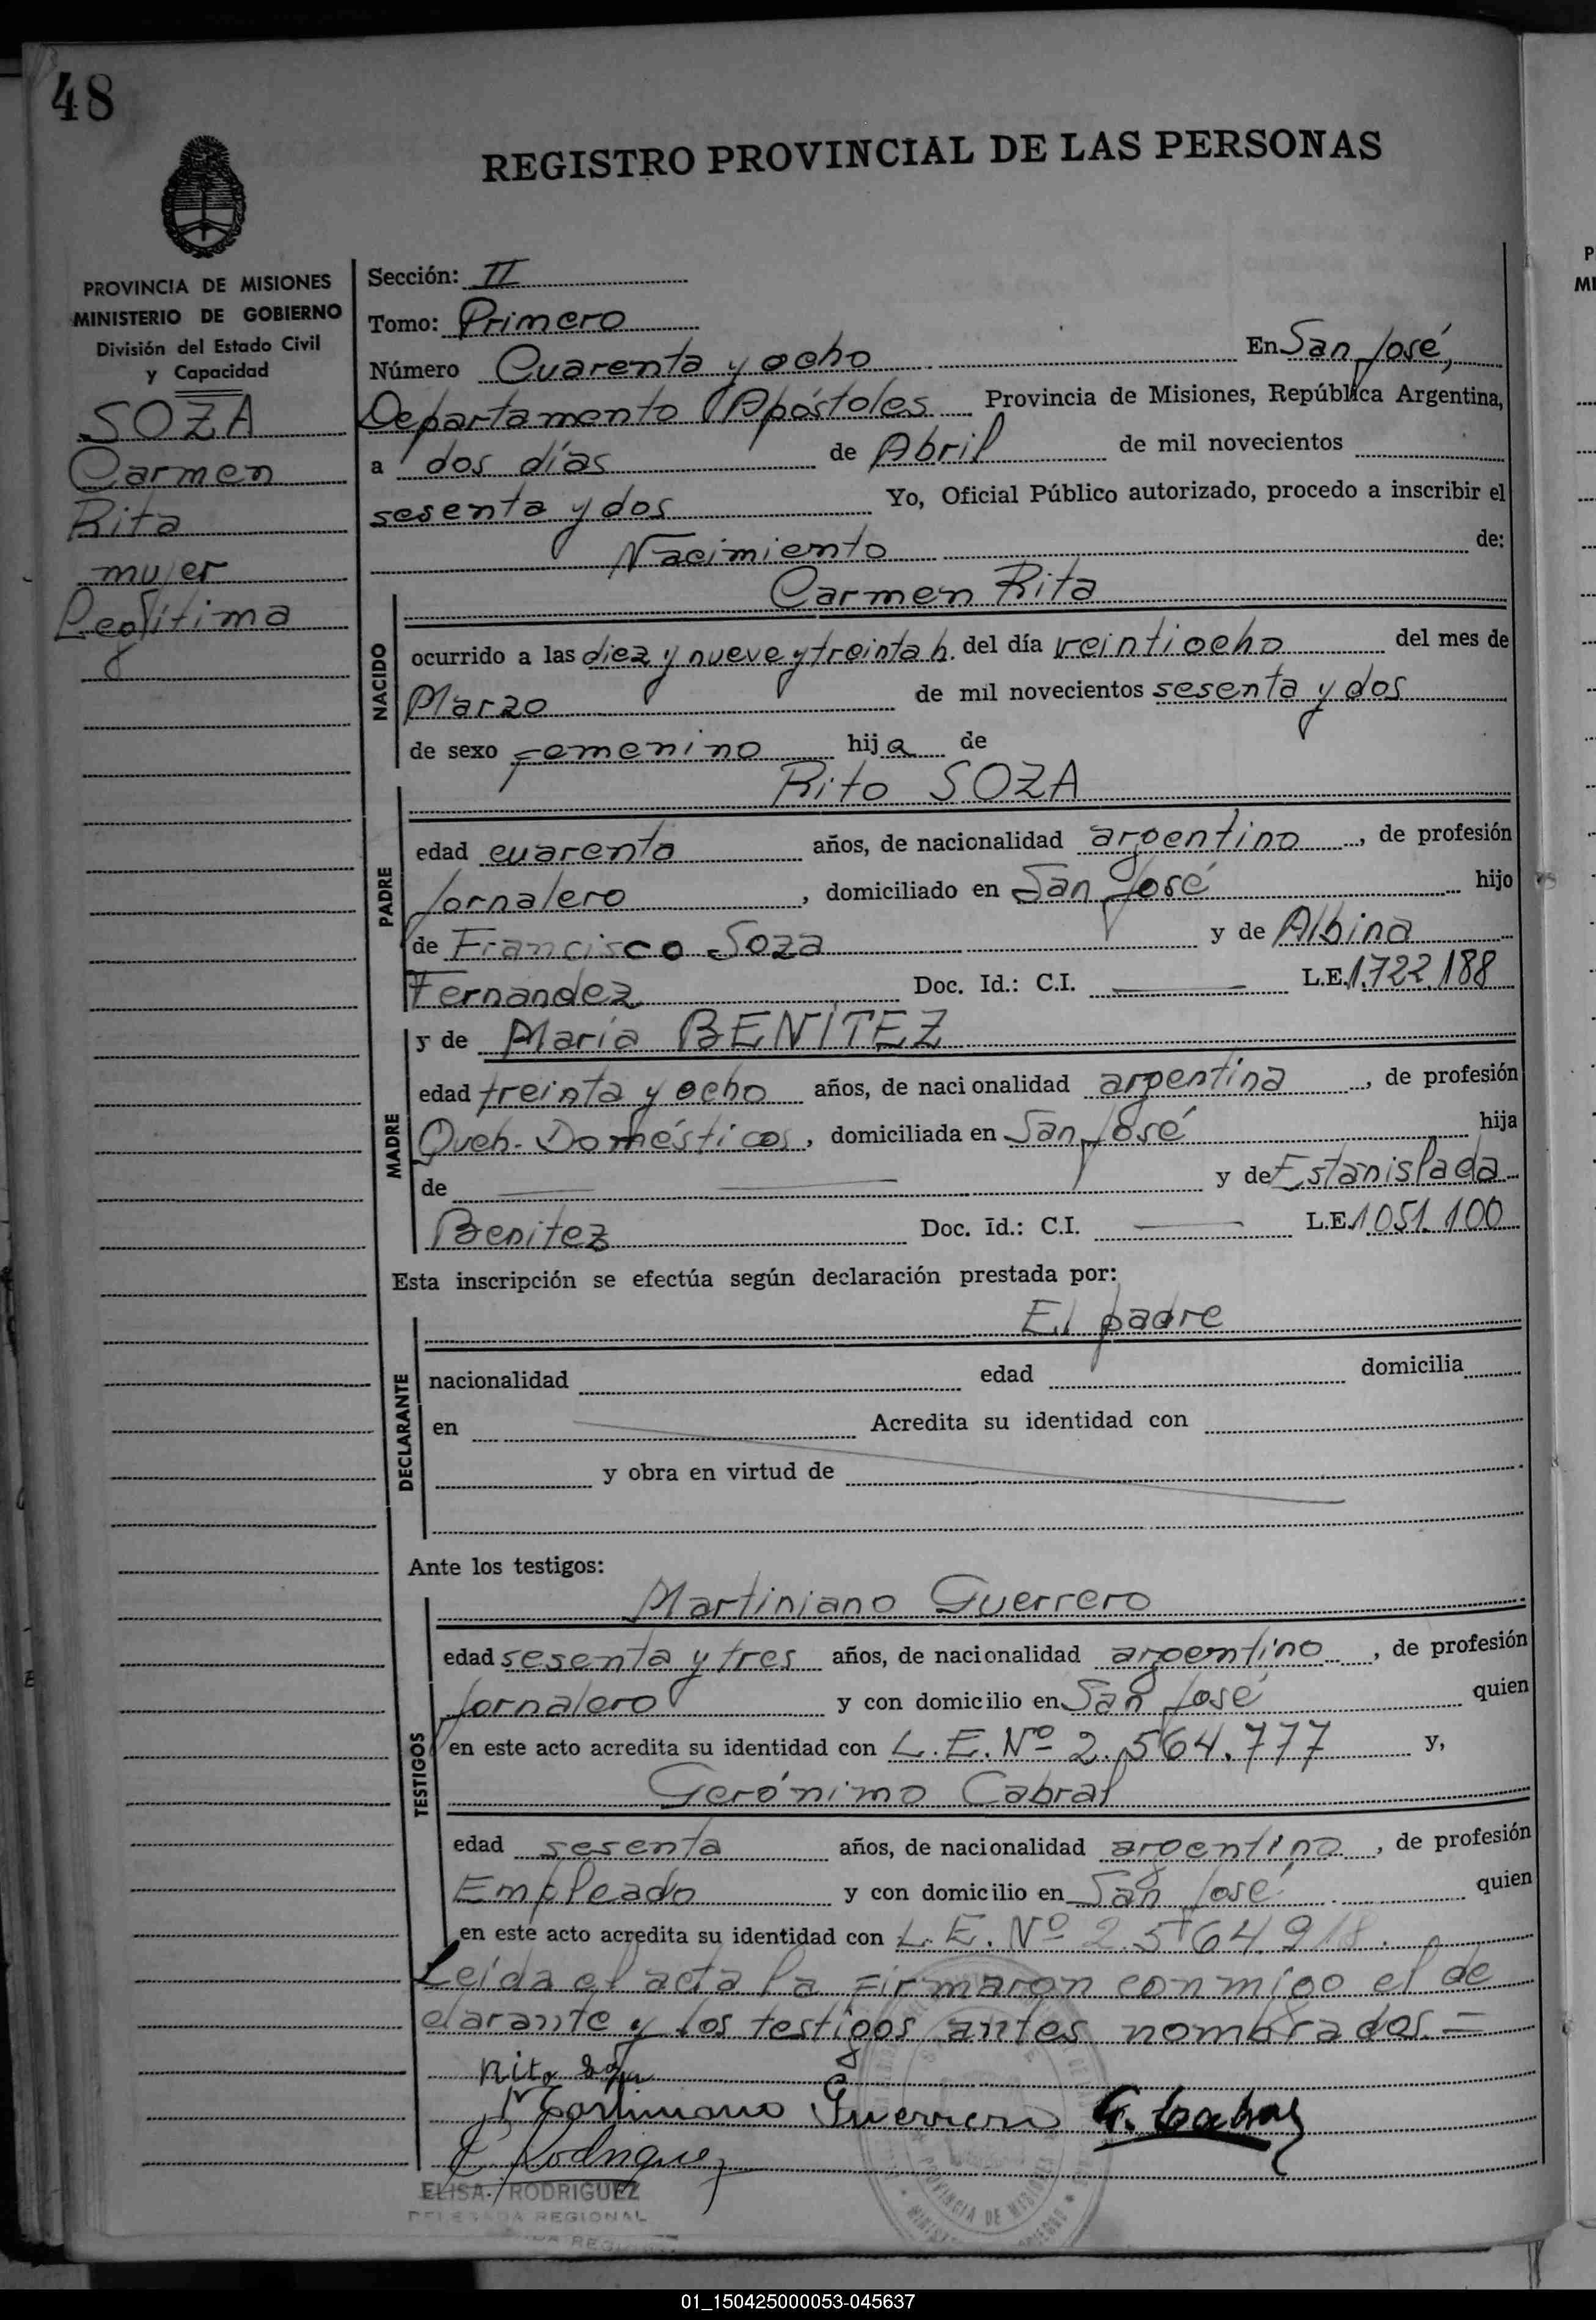 48
REGISTRO PROVINCIAL DE LAS PERSONAS
PROVINCIA DE MISIONES
MINISTERIO DE GOBIERNO
División del Estado Civil
y Capacidad
SOZA
Carmen
Rita
mujer
Legítima
Sección: II
Tomo: Primero
Número Cuarenta y ocho En San José,
Departamento Apóstoles Provincia de Misiones, República Argentina,
a dos días de Abril de mil novecientos
sesenta y dos Yo, Oficial Público autorizado, procedo a inscribir el
Nacimiento de:
NACIDO
Carmen Rita
ocurrido a las diez y nueve y treinta h. del día veintiocho del mes de
Marzo de mil novecientos sesenta y dos
de sexo femenino hija de
PADRE
Rito SOZA
edad cuarenta años, de nacionalidad argentino, de profesión
Jornalero, domiciliado en San José hijo
de Francisco Soza y de Albina
Fernandez Doc. Id.: C.I. — L.E. 1.722.188
MADRE
y de María BENÍTEZ
edad treinta y ocho años, de nacionalidad argentina, de profesión
Queh. Domésticos, domiciliada en San José hija
de — — y de Estanislada
Benitez Doc. Id.: C.I. — L.E. 1051.100
Esta inscripción se efectúa según declaración prestada por:
DECLARANTE
El padre
nacionalidad edad domicilia
en Acredita su identidad con
y obra en virtud de
Ante los testigos:
TESTIGOS
Martiniano Guerrero
edad sesenta y tres años, de nacionalidad argentino, de profesión
Jornalero y con domicilio en San José quien
en este acto acredita su identidad con L.E. Nº 2.564.777 y,
Gerónimo Cabral
edad sesenta años, de nacionalidad argentino, de profesión
Empleado y con domicilio en San José quien
en este acto acredita su identidad con L.E. Nº 2.564918.
Leída el acta la firmaron conmigo el de
clarante y los testigos antes nombrados.=
Rito Soza
Martiniano Guerrero G. Cabral
E Rodriguez
ELISA RODRIGUEZ
DELEGADA REGIONAL
PROVINCIA DE MISIONES
01_150425000053-045637